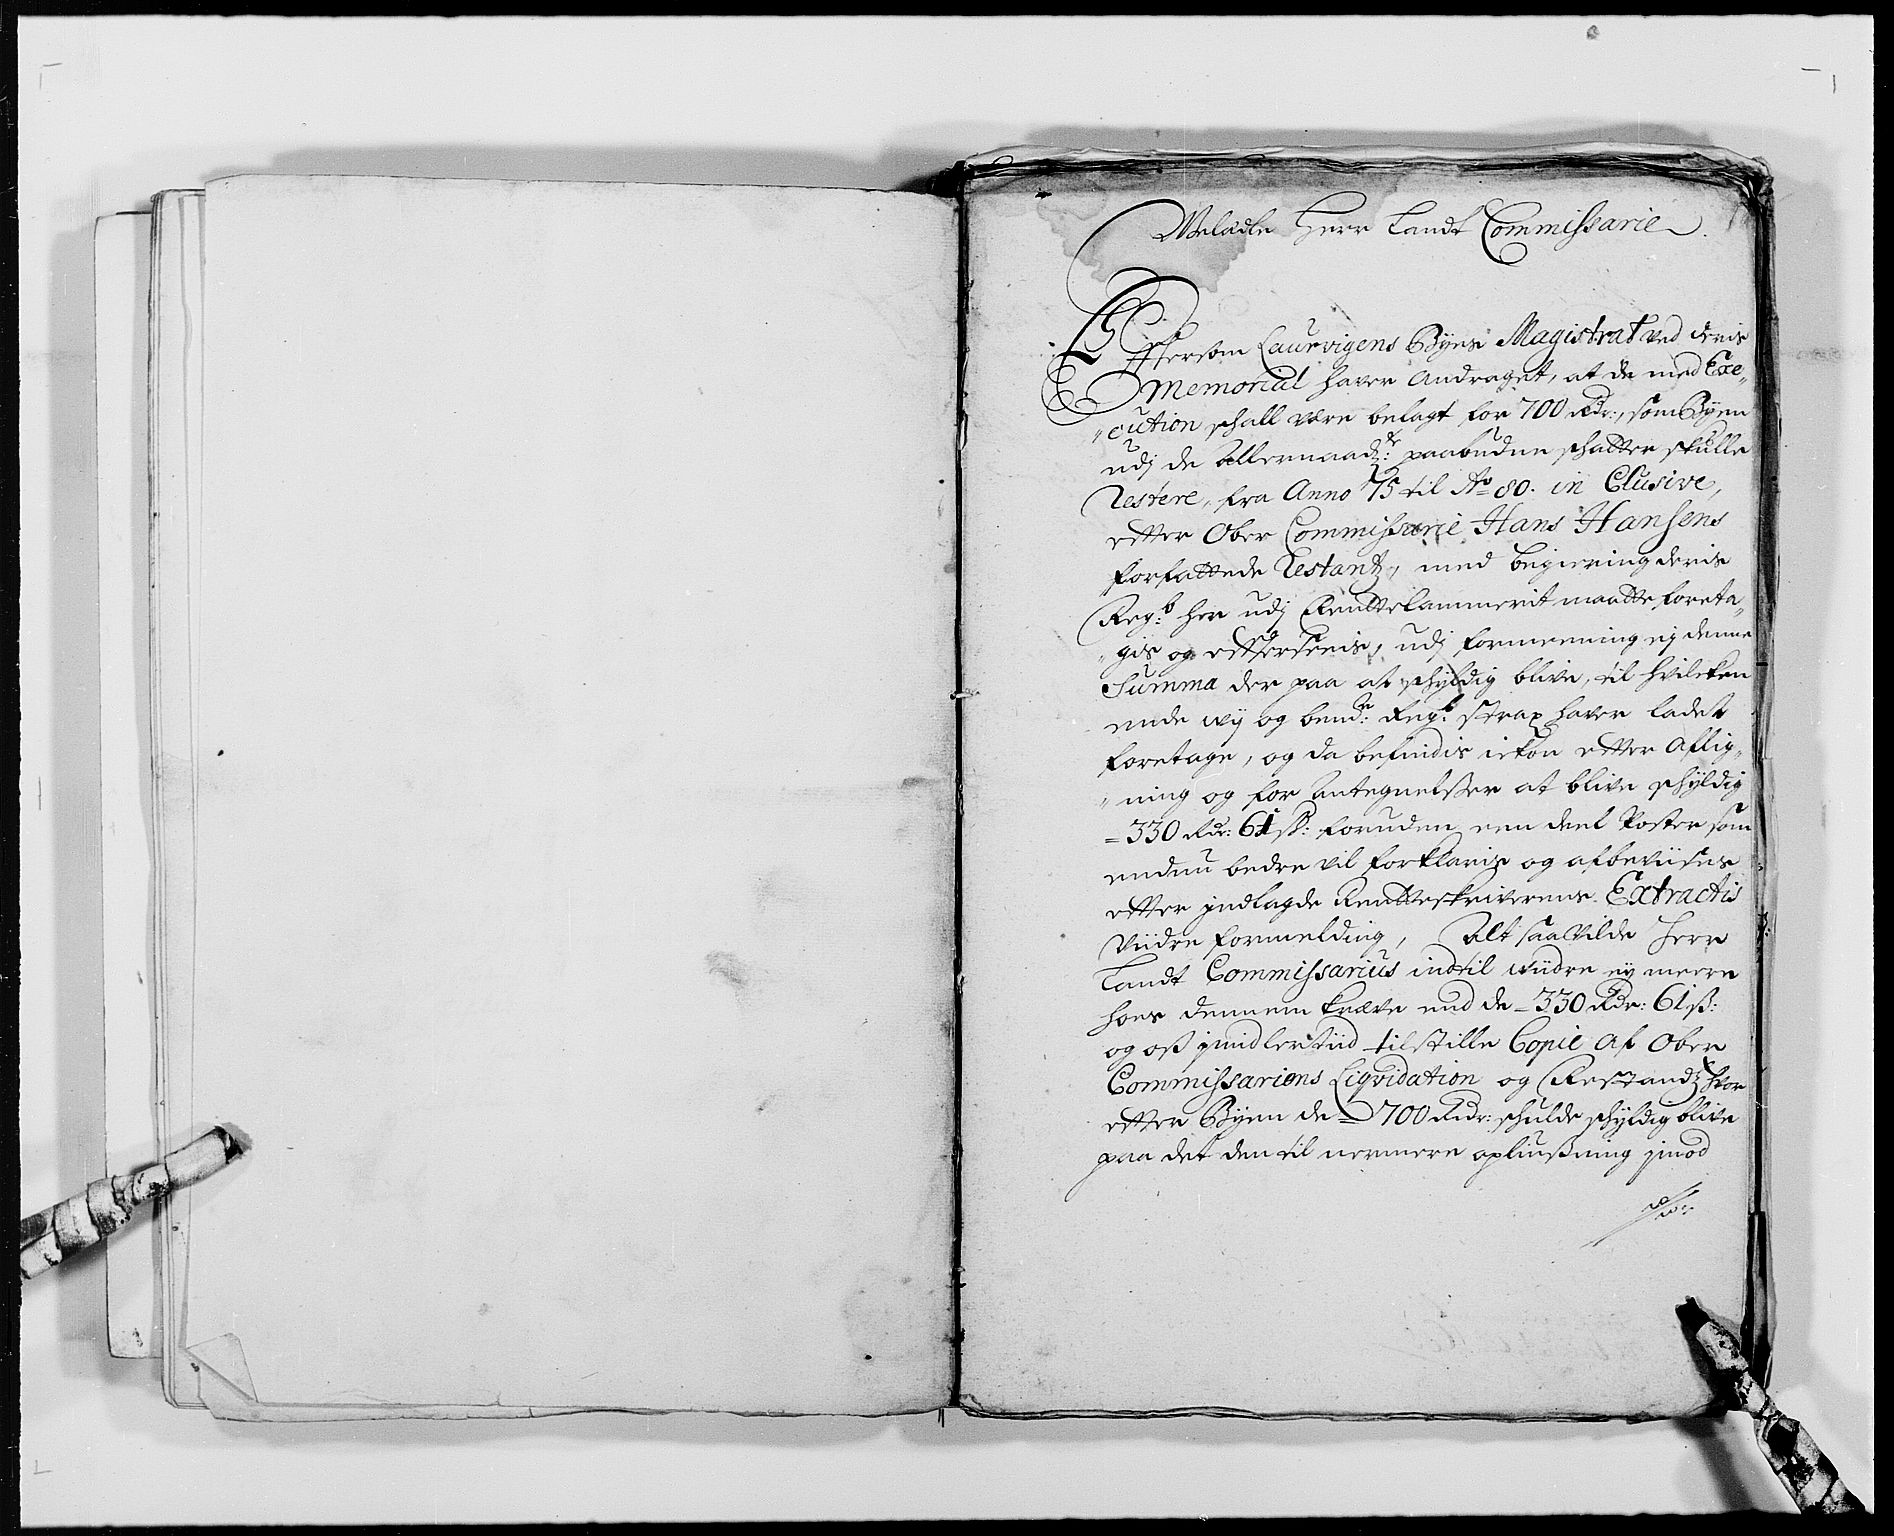 Weladle Herr Landt Commissarie.
Effersom Laurvigens Byes Magistrat ved deris
Memorial hafver andraget, at de med Exe„
„cution schall være belagt for 700 Rdr:, som Byen
udj de allernaadste: paabudne schatter skulle
Restere, fra Anno 75 til Ao 80. in Clusive,
effter Ober Commissarie Hans Hansens
forfattede Restantz, med begiering deris
Regb: her udj Renttekammerit maatte foreta„
„gis og efftersees, udj formeening ej denne
Summa der paa at schyldig blive, til hvilcken
ende wij og bemte: Regb: strax hafver ladet
foretage, og da befindis ickon effter aflig„
„ning og for antegnelsser at blive schyldig
= 330 Rdr: 61 sk: foruden een deel Poster som
endnu bedre vil forklaris og afbeviises
effter jndlagde Rentteskriverens Extractis
viidre formelding, Alt saa vilde Herr
Landt Commissarius indtil wiidre ey meere
hoes dennem kræve end de = 330 Rdr: 61 ß:
og oß jmidlertiid tilstille Copie af Ober
Commissariens Liqvidation og Restandz hvor
effter Byen de = 700 Rdr: schulde schyldig blive
paa det den til nermere opliußning jmod
for